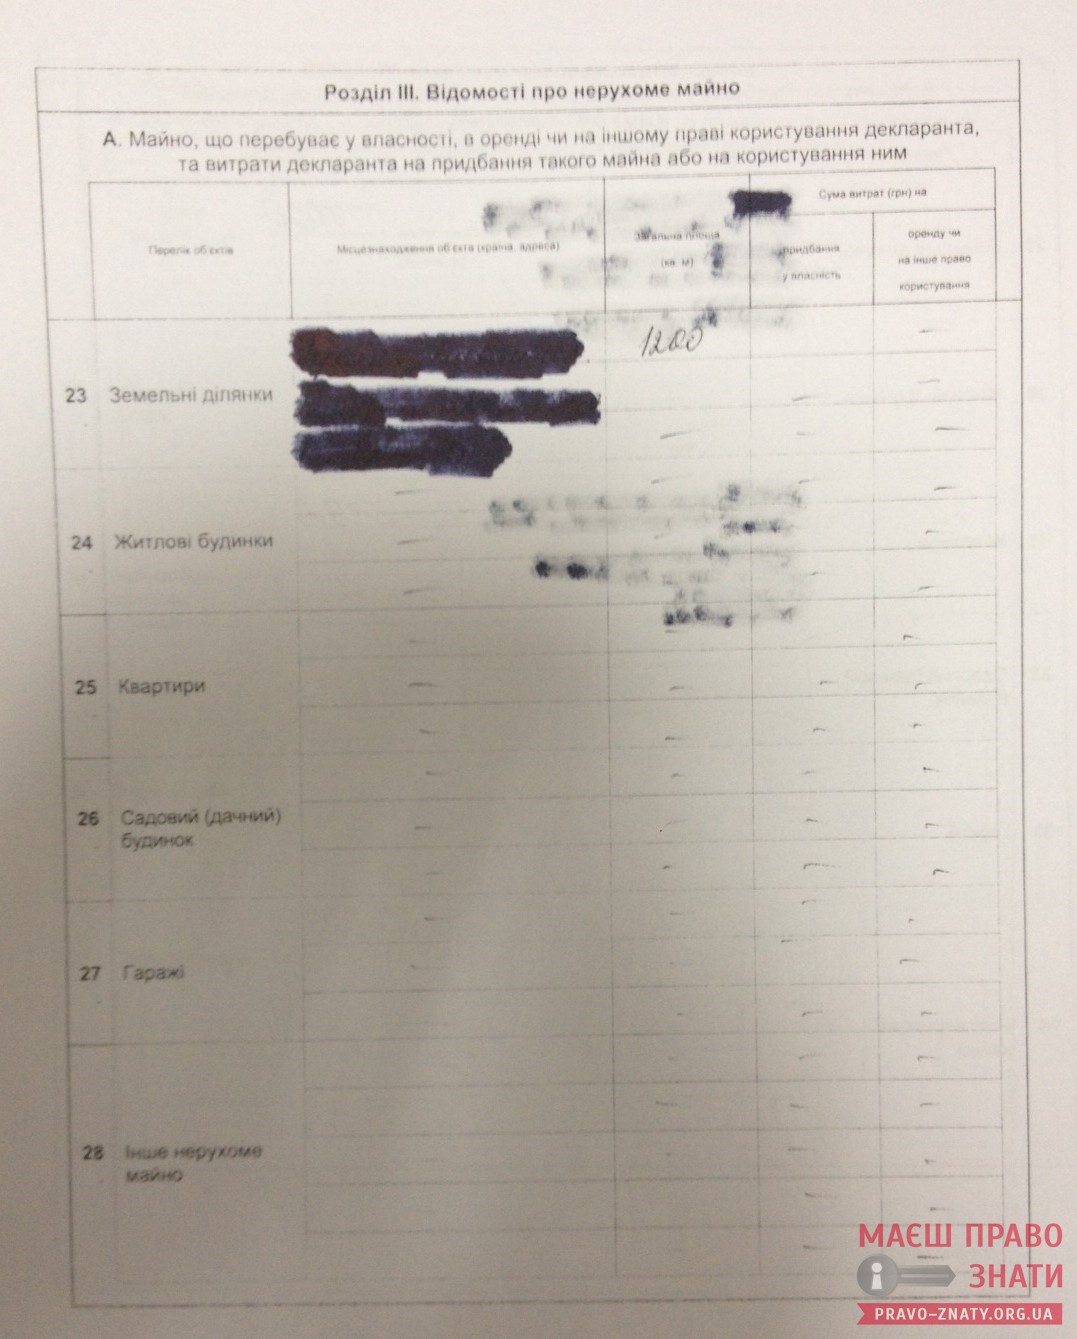 Розділ III. Відомості про нерухоме майно
А. Майно, що перебуває у власності, в оренді чи на іншому праві користування декларанта,
та витрати декларанта на придбання такого майна або на користування ним
Перелік об'єктів
Місцезнаходження об'єкта (країна, адреса)
Загальна площа
(кв. м)
Сума витрат (грн) на
придбання
у власність
оренду чи
на інше право
користування
23 Земельні ділянки
1200
24 Житлові будинки
25 Квартири
26 Садовий (дачний)
будинок
27 Гаражі
28 Інше нерухоме
майно
МАЄШ ПРАВО
ЗНАТИ
PRAVO-ZNATY.ORG.UA